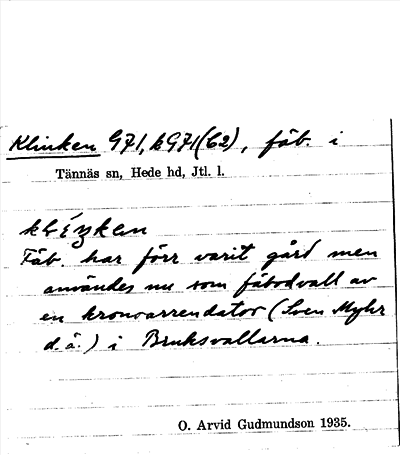 Klinken G71, kG71(62), fäb. i
Tännäs sn, Hede hd, Jtl. l.
Fäb. har förr varit gård men
användes nu som fäbodvall av
en kronoarrendator (Sven Myhr
d.ä.) i Bruksvallarna.
O. Arvid Gudmundson 1935.